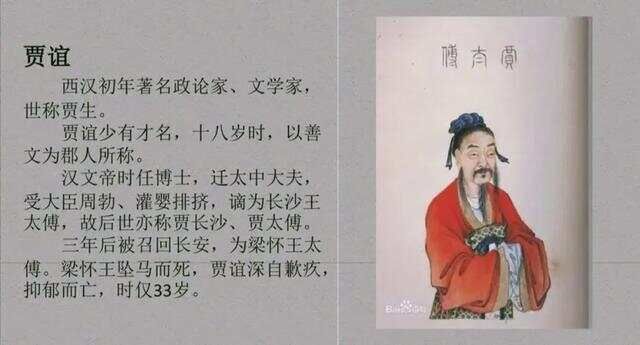 贾谊
西汉初年著名政论家、文学家，
世称贾生。
贾谊少有才名，十八岁时，以善
文为郡人所称。
汉文帝时任博士，迁太中大夫，
受大臣周勃、灌婴排挤，谪为长沙王
太傅，故后世亦称贾长沙、贾太傅。
三年后被召回长安，为梁怀王太
傅。梁怀王坠马而死，贾谊深自歉疚，
抑郁而亡，时仅33岁。
傅太賈
Bai百科